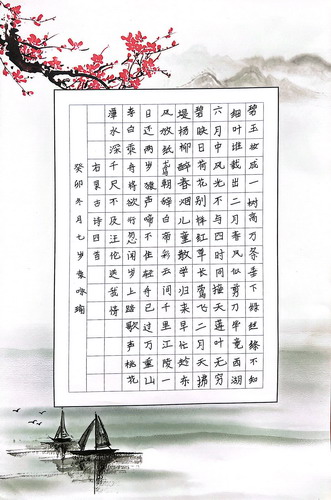 碧玉妆成一树高万条垂下绿丝绦不知
细叶谁裁出二月春风似剪刀毕竟西湖
六月中风光不与四时同接天莲叶无穷
碧映日荷花别样红草长莺飞二月天拂
堤杨柳醉春烟儿童散学归来早忙趁东
风放纸鸢朝辞白帝彩云间千里江陵一
日还两岸猿声啼不住轻舟已过万重山
李白乘舟将欲行忽闻岸上踏歌声桃花
潭水深千尺不及汪伦送我情
右录古诗四首
癸卯冬月七岁